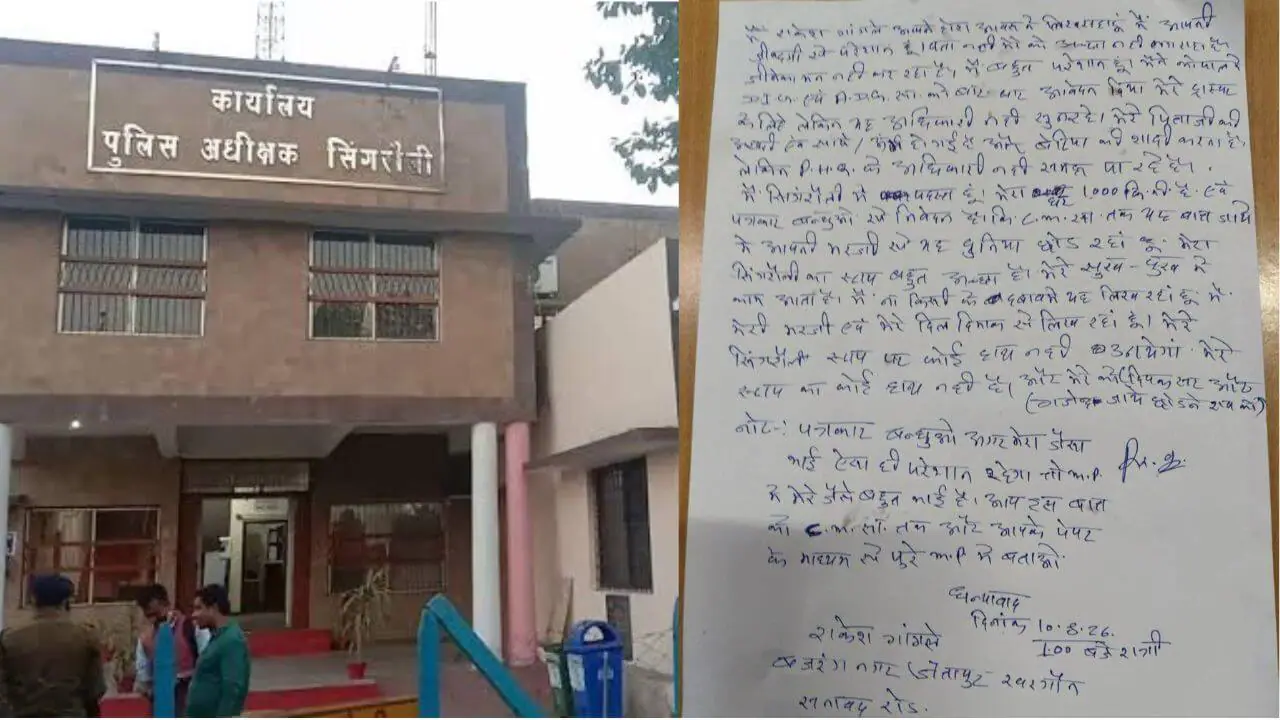 कार्यालय
पुलिस अधीक्षक सिंगरौली
मैं राकेश गांगले अपने होश आवाज में लिख रहा हूं मैं अपनी
से परेशान हूं। पता नही मेरे को अच्छा नही लग रहा है।
नही कर रहा है। मैं बहुत परेशान हूं। मैंने भोपाल में
एवं सर को बार बार आवेदन दिया मेरे ट्रांस्फर
के लिये लेकिन यह अधिकारी नही सुन रहे। मेरे पिताजी की
हो गई है और बेटिया की शादी करना है।
लेकिन P.H.Q. के अधिकारी नही समझ पा रहे है।
मैं सिंगरौली में पदस्त हूं। मेरा घर 1000 कि.मी. है एवं
पत्रकार बन्धुओ से निवेदन है। कि C.M. सर तक यह बात जाये
मैं अपनी मरजी से यह दुनिया छोड रहां हू. मेरा
सिंगरौली का स्टाप बहुत अच्छा है। मेरे सुख-दुख में
काम आता है। मैं ना किसी के दबाव में यह लिख रहां हू मैं
मेरी मरजी एवं मेरे दिल दिमाक से लिख रहां हू। मेरे
सिंगरौली स्टाप पर कोई हाथ नही उठायेगां मेरे
स्टाप का कोई हाथ नही है। और मेरे को (दिपक सर और
जाये छोडने शव को)
नोट-: पत्रकार बन्धुओ अगर मेरा जैसा
भाई ऐसा ही परेशान रहेगा तो M.P
में मेरे जैसे बहुत भाई है। आप इस बात
को C.M. सा. तक और आपके पेपर
के माध्यम से पुरे M.P में बताओ.
धन्यावाद
दिनांक 10.8.26.
राकेश गांगले
1:00 बजे रात्री
बजरंग नगर जैतापुर खरगौन
सनावद रोड.